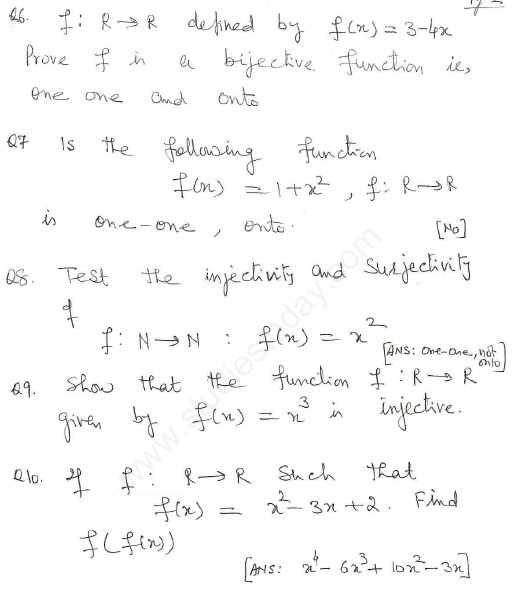 Q6. f: R→R defined by f(x) = 3-4x
Prove f is a bijective function ie,
one one and onto
Q7 Is the following function
f(x) = 1+x², f: R→R
is one-one, onto.
[No]
Q8. Test the injectivity and surjectivity
of
f: N→N : f(x) = x²
[ANS: one-one, not onto]
Q9. Show that the function f : R→R
given by f(x) = x³ is injective.
Q10. If f: R→R such that
f(x) = x²-3x+2. Find
f(f(x))
[ANS: x⁴-6x³+10x²-3x]
www.studiestoday.com